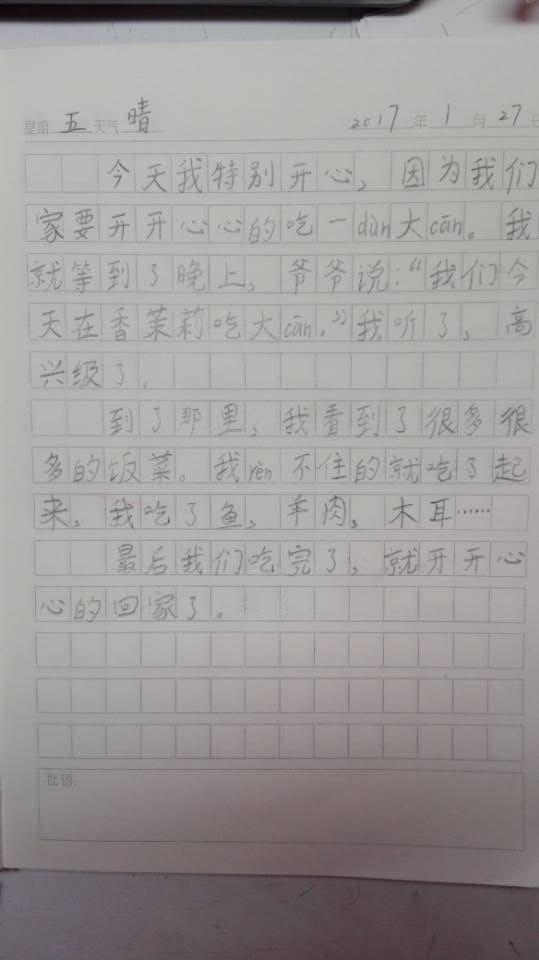 星期 五 天气 晴 2017 年 1 月 27 日
今天我特别开心，因为我们
家要开开心心的吃一dùn大cān。我
就等到了晚上，爷爷说：“我们今
天在香茉莉吃大cān。”我听了，高
兴级了。
到了那里，我看到了很多很
多的饭菜。我rěn不住的就吃了起
来，我吃了鱼，羊肉，木耳……
最后我们吃完了，就开开心
心的回家了。
批语：